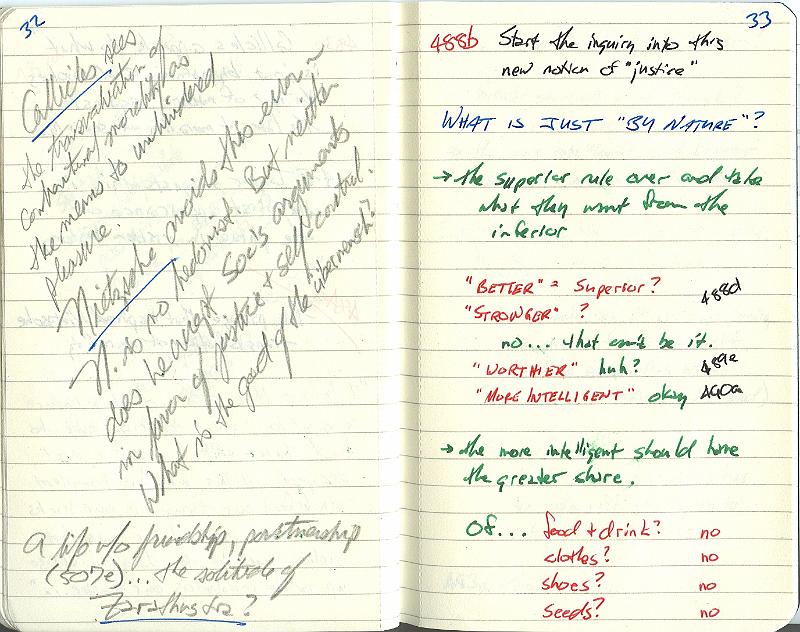 32
Callicles sees
the transvaluation of
contranatural morality as
the means to unhindered
pleasure.
Nietzsche avoids this error in
N. is no hedonist. But neither
does he accept Soc's arguments
in favor of justice + self-control.
What is the good of the übermensch?
A life w/o friendship, partnership
(507e)... the solitude of
Zarathustra?
33
488b Start the inquiry into this
new notion of "justice"
WHAT IS JUST "BY NATURE"?
→ the superior rule over and take
what they want from the
inferior
"BETTER" = Superior? 488d
"STRONGER" ?
no... that can't be it.
"WORTHIER" huh? 489e
"MORE INTELLIGENT" okay 490a
→ the more intelligent should have
the greater share.
Of... food + drink? no
clothes? no
shoes? no
seeds? no